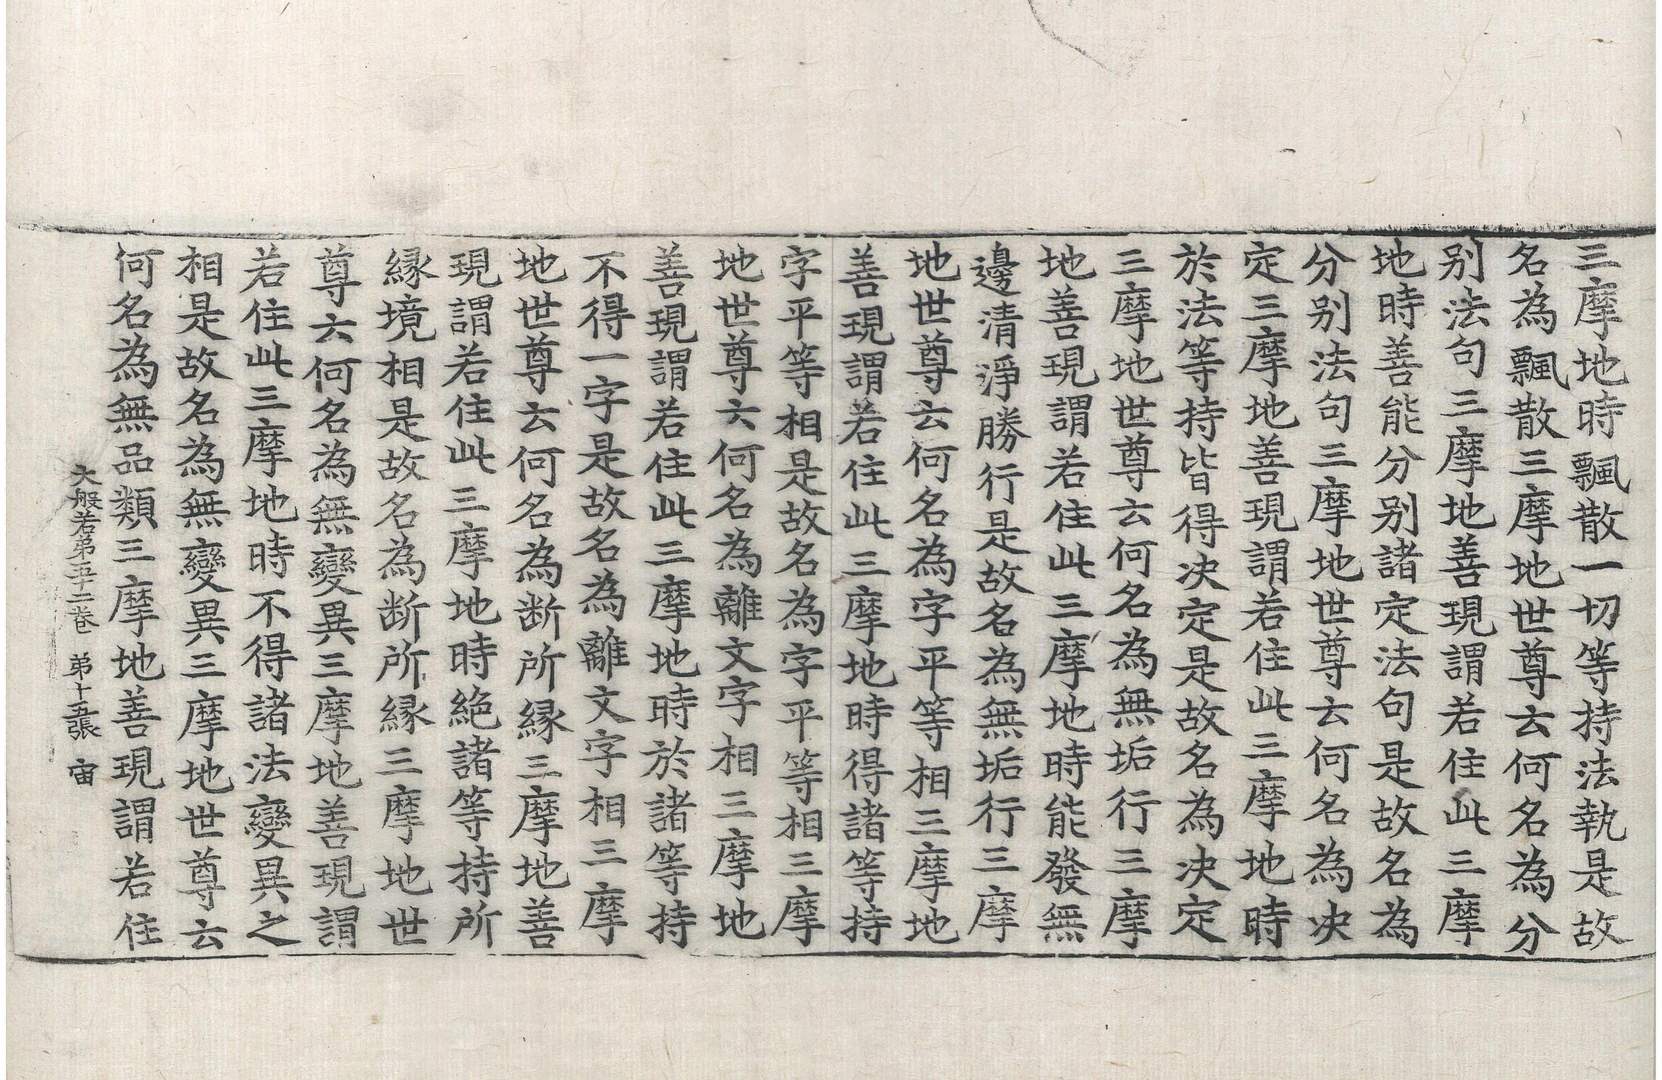 三摩地時飄散一切等持法執是故
名為飄散三摩地世尊云何名為分
别法句三摩地善現謂若住此三摩
地時善能分别諸定法句是故名為
分别法句三摩地世尊云何名為决
定三摩地善現謂若住此三摩地時
於法等持皆得决定是故名為决定
三摩地世尊云何名為無垢行三摩
地善現謂若住此三摩地時能發無
邊清淨勝行是故名為無垢行三摩
地世尊云何名為字平等相三摩地
善現謂若住此三摩地時得諸等持
字平等相是故名為字平等相三摩
地世尊云何名為離文字相三摩地
善現謂若住此三摩地時於諸等持
不得一字是故名為離文字相三摩
地世尊云何名為断所緣三摩地善
現謂若住此三摩地時絶諸等持所
緣境相是故名為断所緣三摩地世
尊云何名為無變異三摩地善現謂
若住此三摩地時不得諸法變異之
相是故名為無變異三摩地世尊云
何名為無品類三摩地善現謂若住
大般若第五十二卷 第十五張 宙